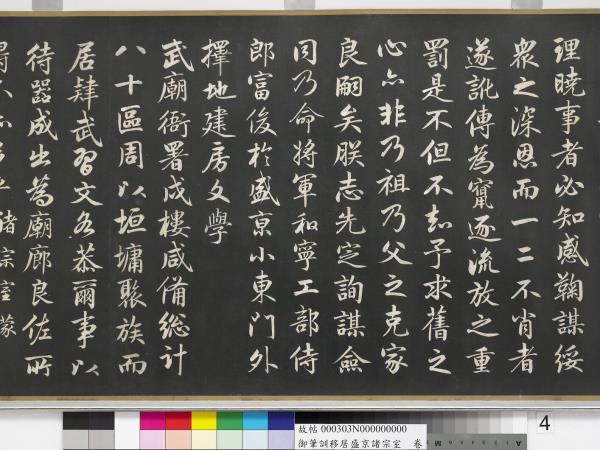 理曉事者必知感鞠謀綏
衆之深恩而一二不肖者
遂訛傳為竄逐流放之重
罰是不但不知予求舊之
心亦非乃祖乃父之克家
良嗣矣朕志先定詢謀僉
同乃命將軍和寧工部侍
郎富俊於盛京小東門外
擇地建房文學
武廟衙署戍樓咸備總計
八十區周以垣墉聚族而
居肄武習文各恭爾事以
待器成出為廟廊良佐所
諸宗室蒙
故帖 000303N000000000
御筆訓移居盛京諸宗室 卷
4